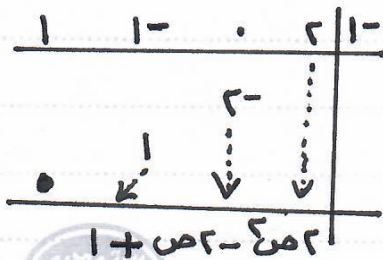 -١ | ٢ ٠ -١ ١
-٢
١
٠
٢ص٢ - ٢ص + ١